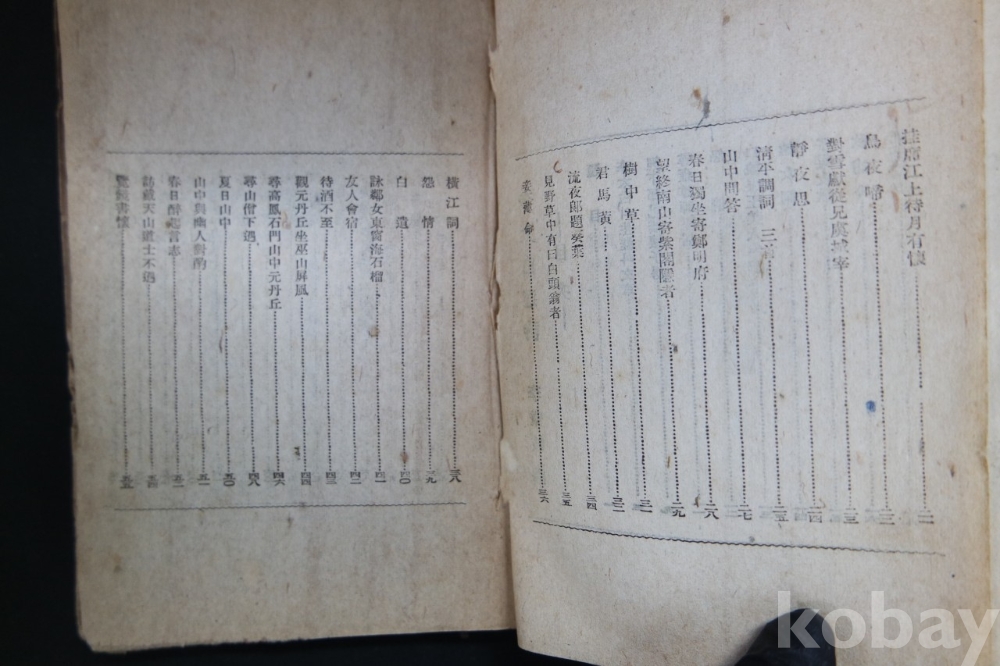 挂席江上待月有懷
烏夜啼
對雪獻從兄虞城宰
靜夜思
清平調詞 三
山中問答
春日獨坐寄鄭明府
望終南山寄紫閣隱者
樹中草
君馬黃
流夜郎題葵葉 三四
見野草中有曰白頭翁者 三五
三六
橫江詞 三八
怨情 三九
自遣 四〇
詠鄰女東窗海石榴 四一
友人會宿 四二
待酒不至 四三
觀元丹丘坐巫山屛風 四四
尋高鳳石門山中元丹丘 四六
尋山僧不遇 四八
夏日山中 五〇
山中與幽人對酌 五一
春日醉起言志
訪戴天山道士不遇 五四
kobay